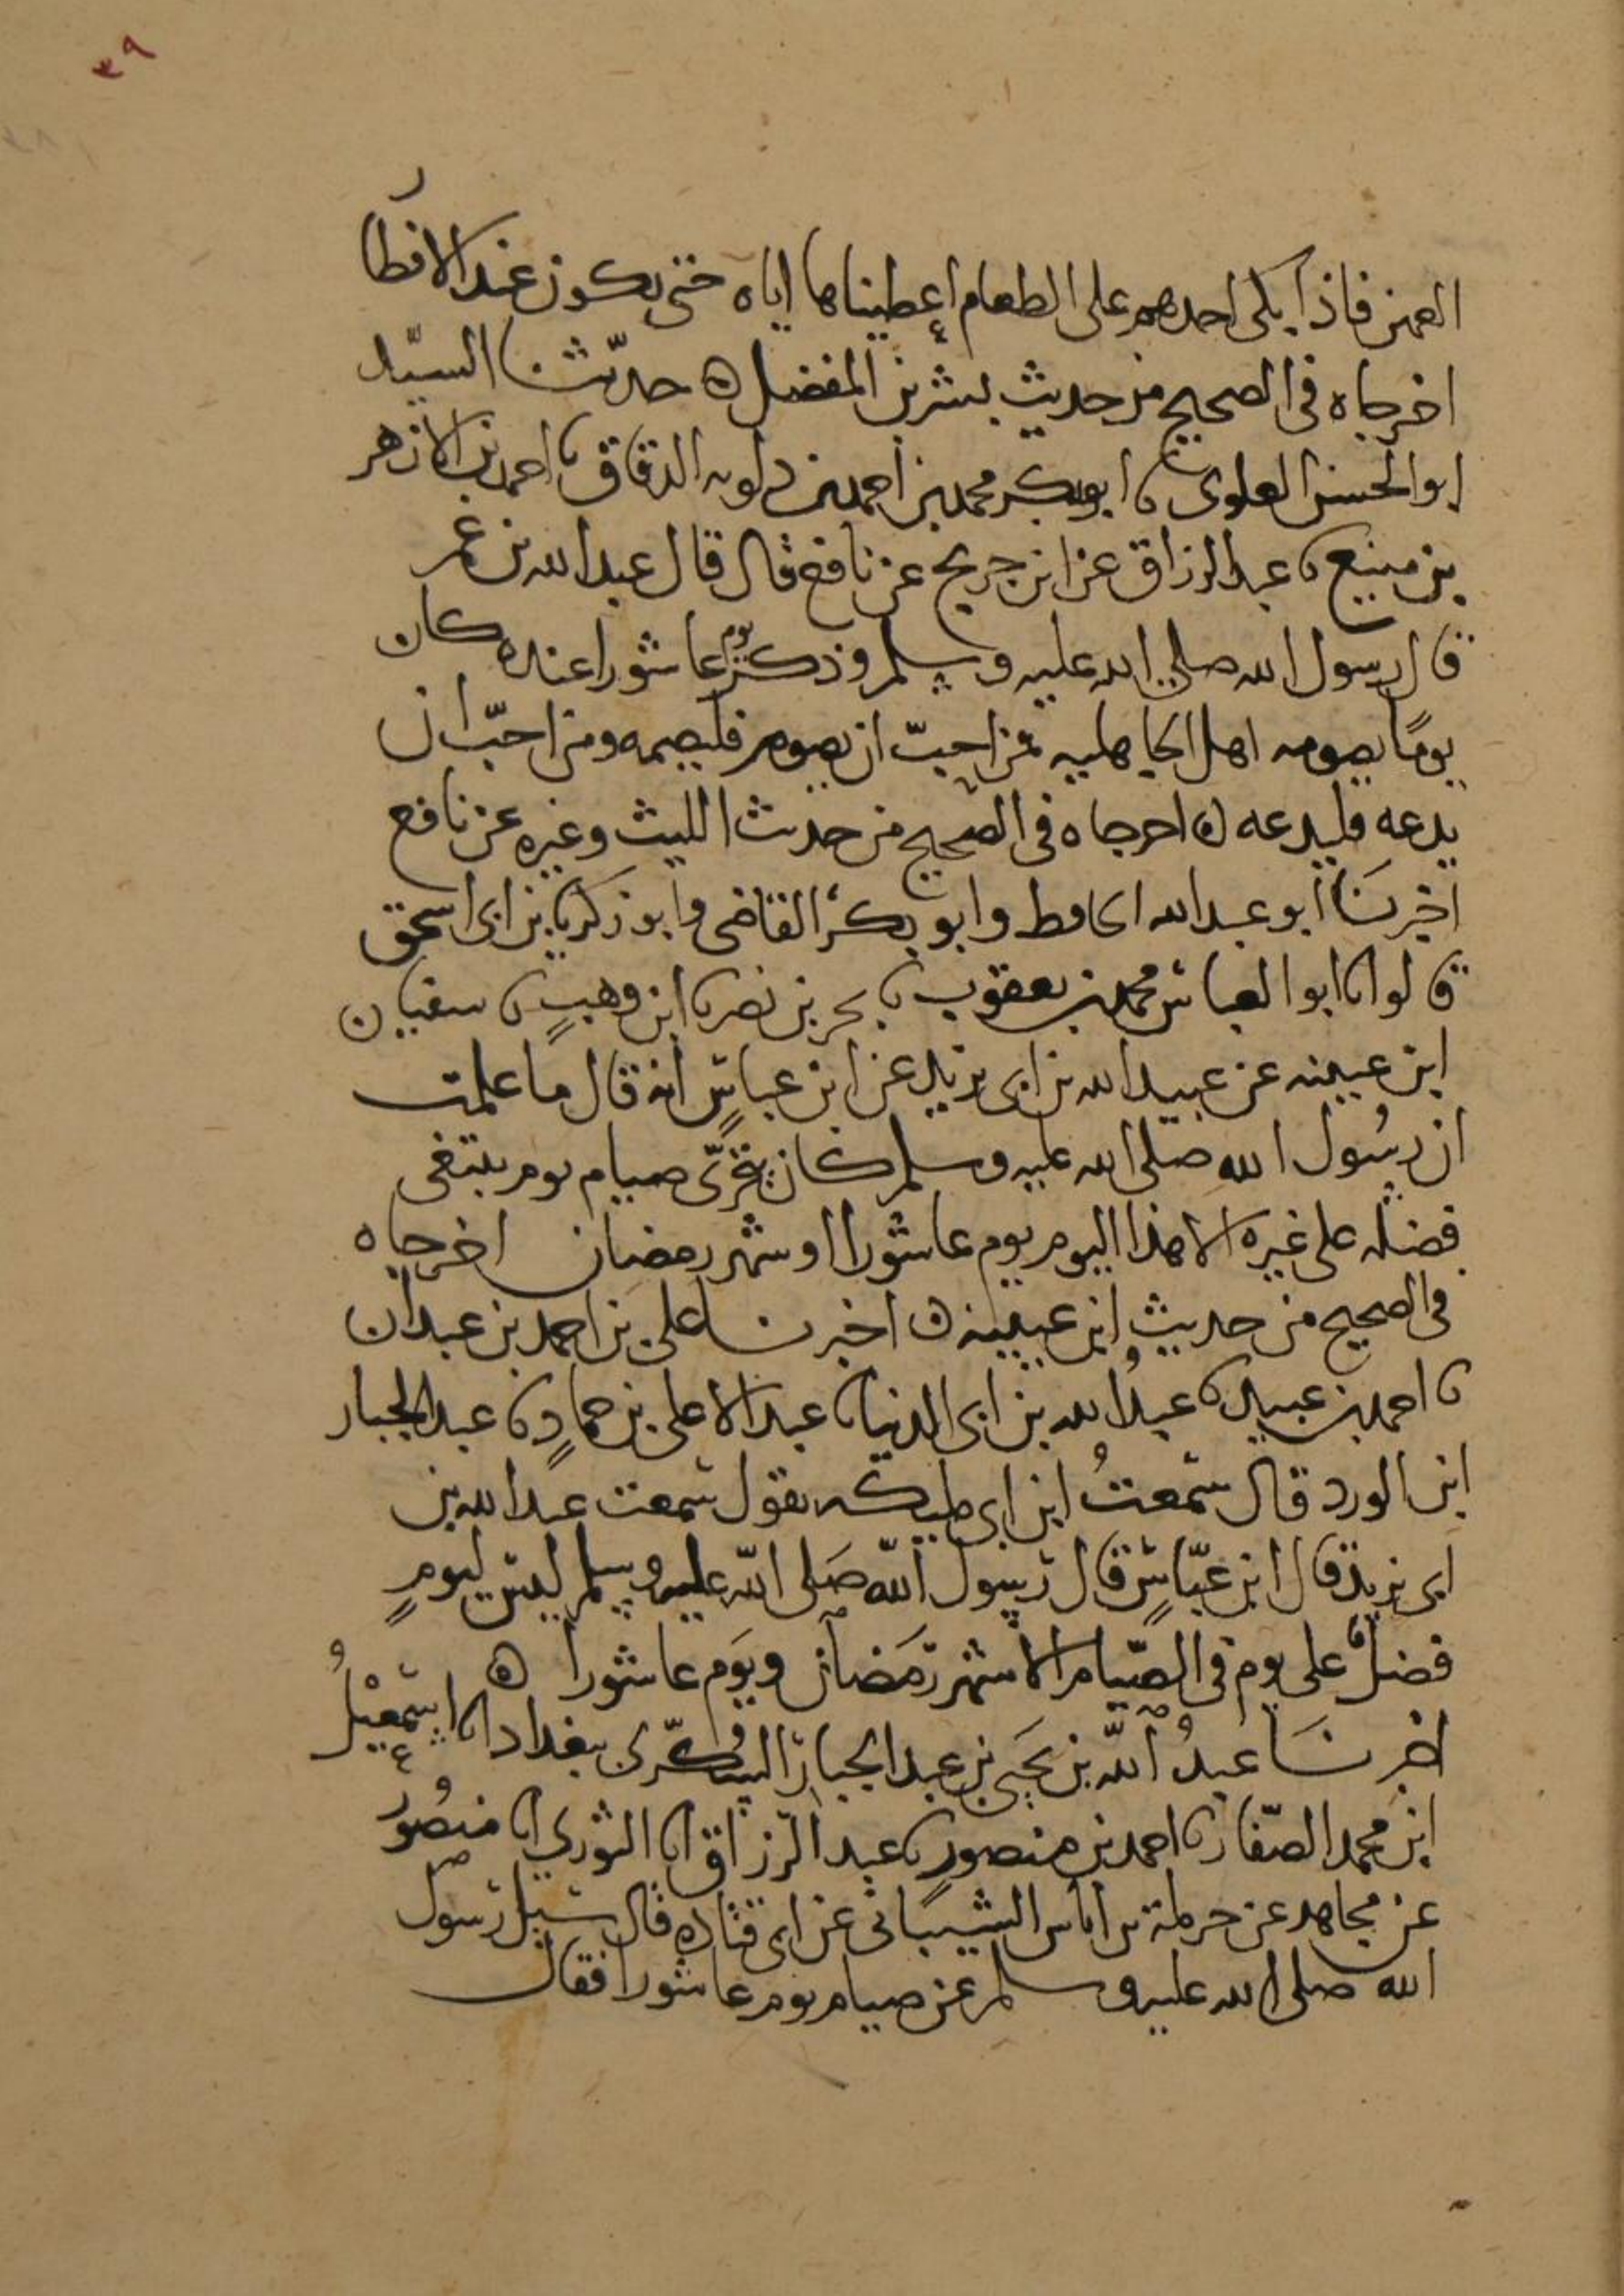 ٣٩
العهن فاذا بكى احدهم على الطعام اعطيناها اياه حتى يكون عند الافطار
اخرجاه في الصحيح من حديث بشر بن المفضل ه حدثنا السيّد
ابو الحسن العلوي نا ابو بكر محمد بن احمد بن دلويه الدقاق نا احمد بن الازهر
بن منيع نا عبد الرزاق عن ابن جريج عن نافع قال قال عبد الله بن عمر
قال رسول الله صلى الله عليه وسلم وذكر يوم عاشورا عنده كان
يومًا يصومه اهل الجاهليه فمن احبّ ان يصومه فليصمه ومن احبّ ان
يدعه فليدعه ه اخرجاه في الصحيح من حديث الليث وغيره عن نافع
اخبرنَا ابو عبد الله الحافظ وابو بكر القاضي وابو زكريا بن ابي اسحق
قالوا نا ابو العباس محمد بن يعقوب نا بحر بن نصر نا ابن وهبٍ نا سفيان
ابن عيينه عن عبيد الله بن ابي يزيد عن ابن عباسٍ انه قال ما علمت
ان رسُول الله صلى الله عليه وسلم كان يتحرَّى صيام يوم يبتغي
فضله على غيره الا هذا اليوم يوم عاشورا او شهر رمضان اخرجاه
في الصحيح من حديث ابن عيينه ه اخبرنا علي بن احمد بن عبدان
نا احمد بن عبيد نا عبدُ الله بن ابي الدنيا نا عبد الاعلى بن حمادٍ نا عبد الجبار
ابن الورد قال سمعتُ ابن ابي مليكه يقول سمعت عبيد الله بن
ابي يزيد قال ابن عبّاسٍ قال رسول اللّه صَلى اللّه عليه وسلم ليس ليومٍ
فضلٌ على يوم في الصّيام الا شهر رَمَضان ويَوَم عاشورا ه
اخبرنَا عبدُ اللّه بن يَحيى بن عبد الجبار السُّكّرى ببغداد انا اسمعيْلُ
ابن محمد الصّفار نا احمد بن منصورٍ نا عبد الرّزاق انا الثوري انا منصُورٌ
عن مجاهد عن حرملة بن اياس الشيباني عن ابي قتاده قال سيل رسول
الله صلى الله عليه وسلم عن صيام يوم عاشورا فقال